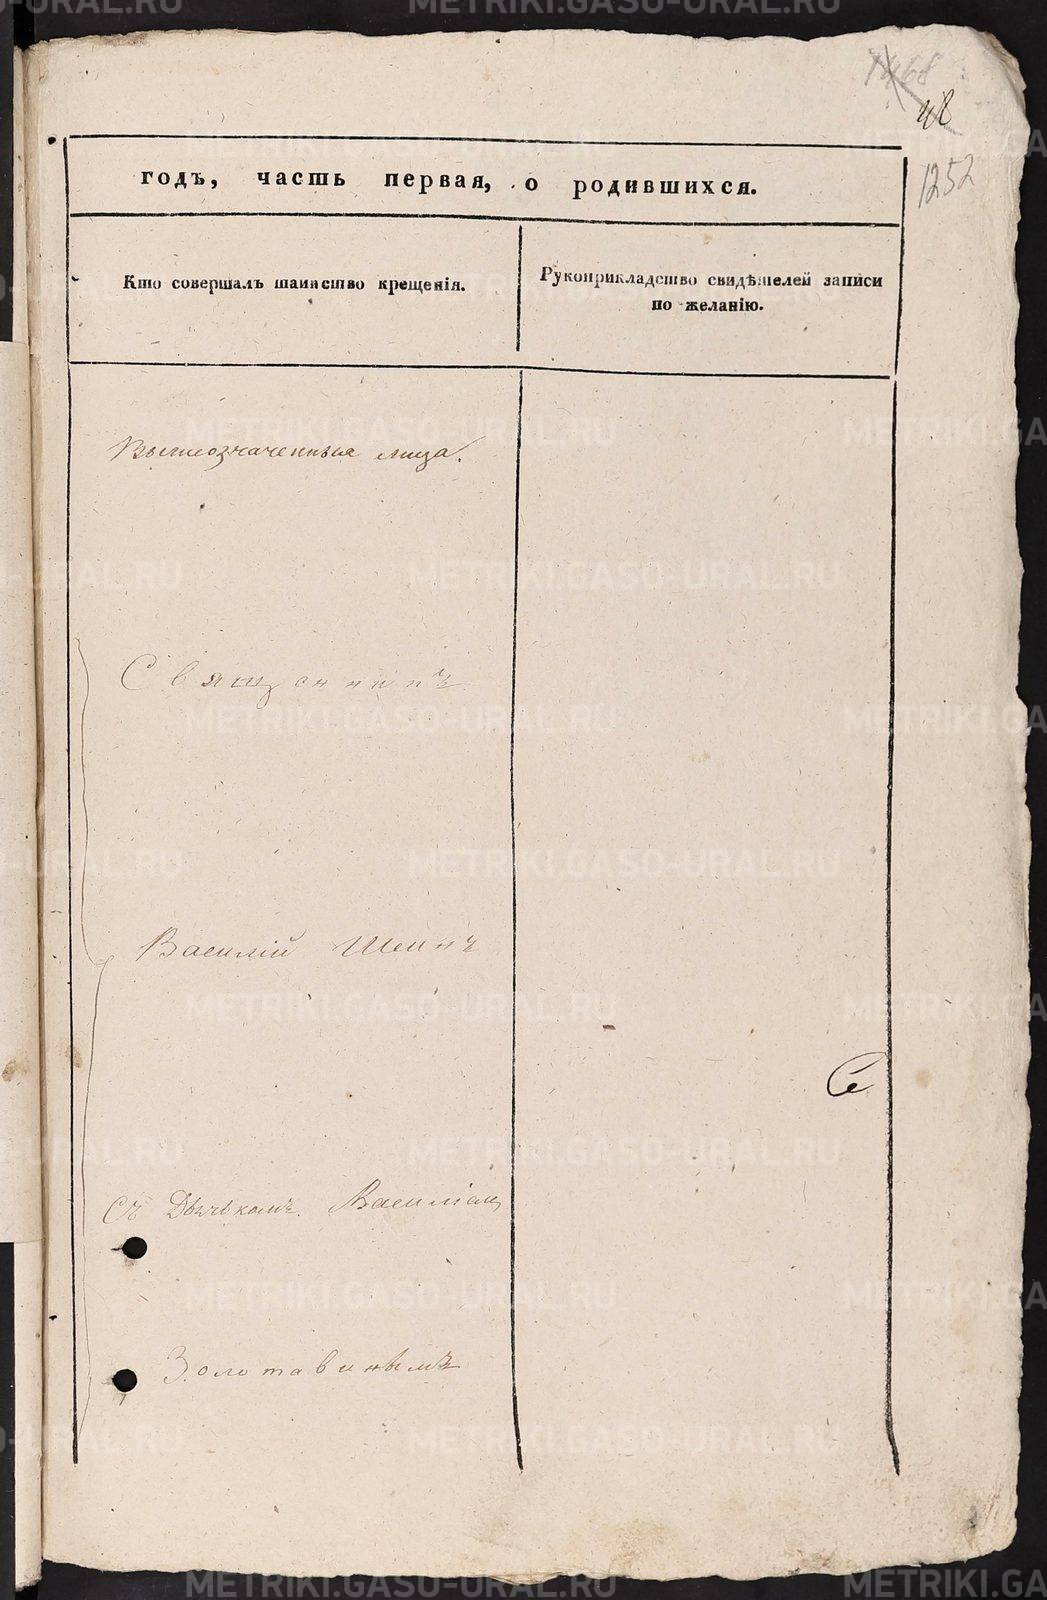 1468
48
1252
годъ, часть первая, о родившихся.
Кто совершалъ таинство крещенія.
Рукоприкладство свидѣтелей записи
по желанію.
Вышеозначенныя лица.
Священникъ
Василій Шеинъ
Съ Дьячькомъ Василіем
Золотавинымъ
METRIKI.GASO-URAL.RU